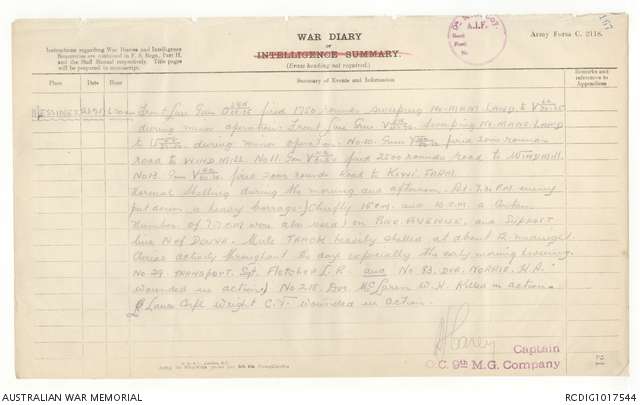 WAR DIARY
OF
INTELLIGENCE SUMMARY.
(Erase heading not required.)
Army Form C. 2118.
167
A.I.F.
Instructions regarding War Diaries and Intelligence
Summaries are contained in F. S. Regs., Part II.
and the Staff Manual respectively. Title pages
will be prepared in manuscript.
Place
Date
Hour
Summary of Events and Information
Remarks and
references to
Appendices
MESSINES Front line Gun fired 1750 rounds sweeping No-MANS LAND to
during minor operation. Front line Gun sweeping No-MANS LAND
to U during minor operation. No. 10. Gun fired 2000 rounds
road to WIND MILL. No 11. Gun fired 2500 rounds road to WINDMILL.
No 13. Gun fired 2000 rounds Road to KIWI FARM.
Normal shelling during the morning and afternoon. At 7.30 P.M. enemy
put down a heavy barrage (Chiefly 15 c.m. and 10.5.M. a certain
number of 7.7 C.M were also used) on AVENUE, and SUPPORT
line N of DOUVE. Mule TRACK heavily shelled at about 12. midnight
Aerial activity throughout the day especially the early morning & evening.
No 29. TRANSPORT. Sgt. Fletcher L. R. and No 83. DVR. NORRIE. H.A.
wounded in action. No 215. Dvr McLaren W. H. Killed in action.
Lance Corpl Wright C. Y. wounded in action.
Captain
O.C. 9th M.G. Company
21
AUSTRALIAN WAR MEMORIAL
RCDIG1017544